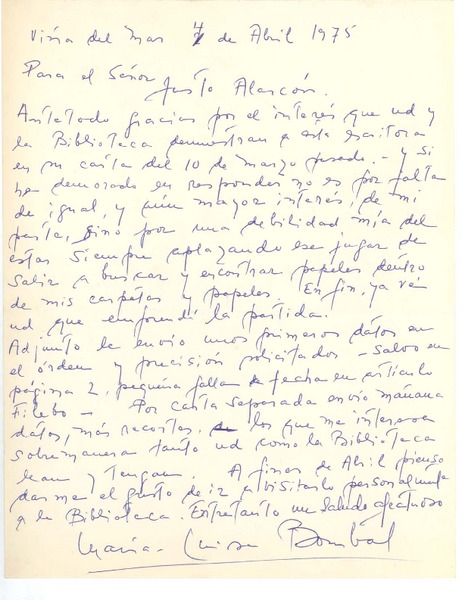 Viña del Mar 4 de Abril 1975
Para el Señor
Justo Alarcón.
Antetodo gracias por el interés que ud y
la Biblioteca demuestran a esta escritora
en su carta del 10 de Marzo pasado. - y si
he demorado en responder no es por falta
de igual, y aún mayor interés, de mi
parte, sino por una debilidad mía del
estar siempre aplazando ese jugar de
salir a buscar y encontrar papeles dentro
de mis carpetas y papeles. En fin, ya ve
ud que emprendí la partida.
Adjunto le envío unos primeros dátos en
el órden y precisión solicitados - Salvo en
página 2, pequeña falla de fecha en artículo
Filebo - Por carta separada envío mañana
dátos, más recortes, los que me interesa
sobremanera tanto ud como la Biblioteca
lean y tengan. A fines de Abril pienso
darme el gusto de ir a visitarlo personalmente
a la Biblioteca. Entretanto un saludo afectuoso
María-Luisa Bombal